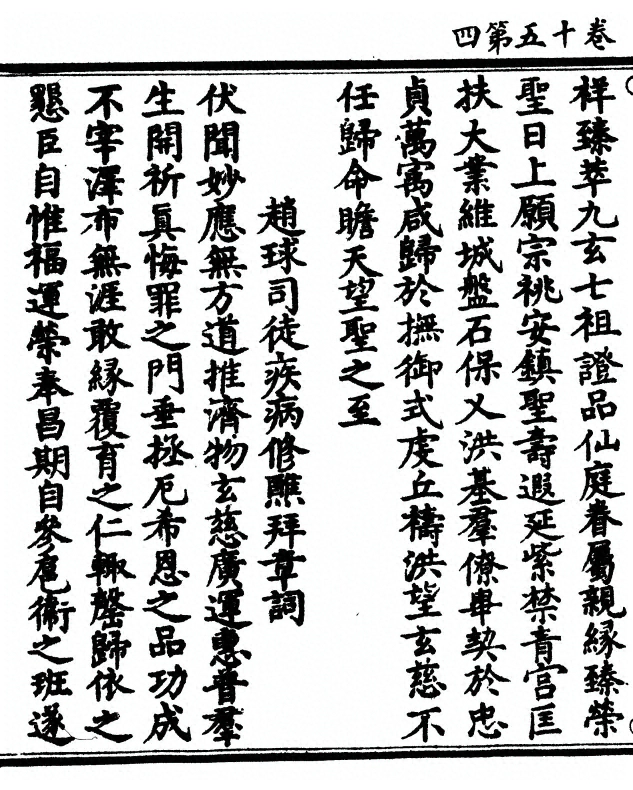 卷十五第四
祥臻萃九玄七祖證品仙庭眷屬親緣臻榮
聖日上願宗祧安鎮聖壽遐延紫禁青宫匡
扶大業維城盤石保乂洪基羣僚畢契於忠
貞萬㝢咸歸於撫御式虔丘禱洪望玄慈不
任歸命瞻天望聖之至
趙球司徒疾病修醮拜章詞
伏聞妙應無方道推濟物玄慈廣運惠普羣
生開祈真悔罪之門垂拯厄希恩之品功成
不宰澤布無涯敢緣覆育之仁輙罄歸依之
懇臣自惟福運榮奉昌期自參扈衛之班遂